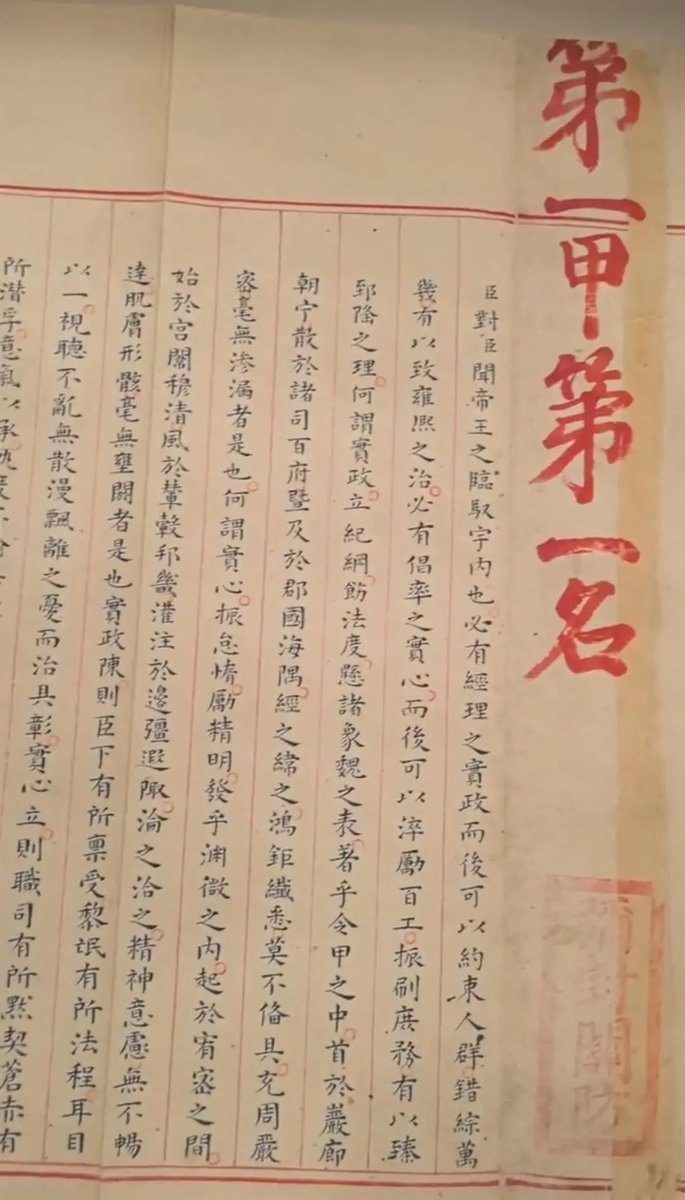 第一甲第一名
臣對臣聞帝王之臨馭宇內也必有經理之實政而後可以約束人群錯綜萬
幾有以致雍熙之治必有倡率之實心而後可以淬勵百工振刷庶務有以臻
郅隆之理何謂實政立紀綱飭法度懸諸象魏之表著乎令甲之中首於巖廊
朝宁散於諸司百府暨及於郡國海隅經之緯之鴻鉅纖悉莫不俻具充周嚴
密毫無滲漏者是也何謂實心振怠惰勵精明發乎淵微之內起於宥密之間
始於宮穆清風於輦轂邦畿灌注於邊彊遐陬淪之洽之精神意慮無不暢
達肌膚形骸毫無壅閼者是也實政陳則臣下有所稟受黎氓有所法程耳目
以一視聽不亂無散漫飄離之憂而治具彰實心立則職司有所默契蒼赤有
所潛孚意氣以承
彌封關防